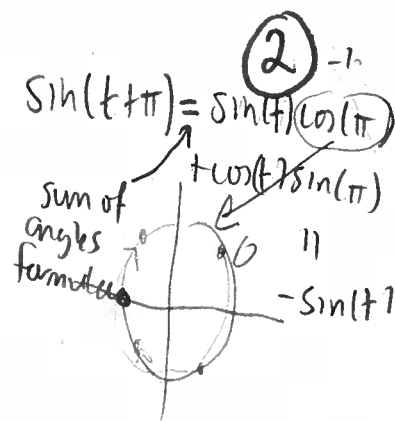 2
-1
sin(t+π) = sin(t)cos(π)
+cos(t)sin(π)
sum of
angles
formula
=
-sin(t)